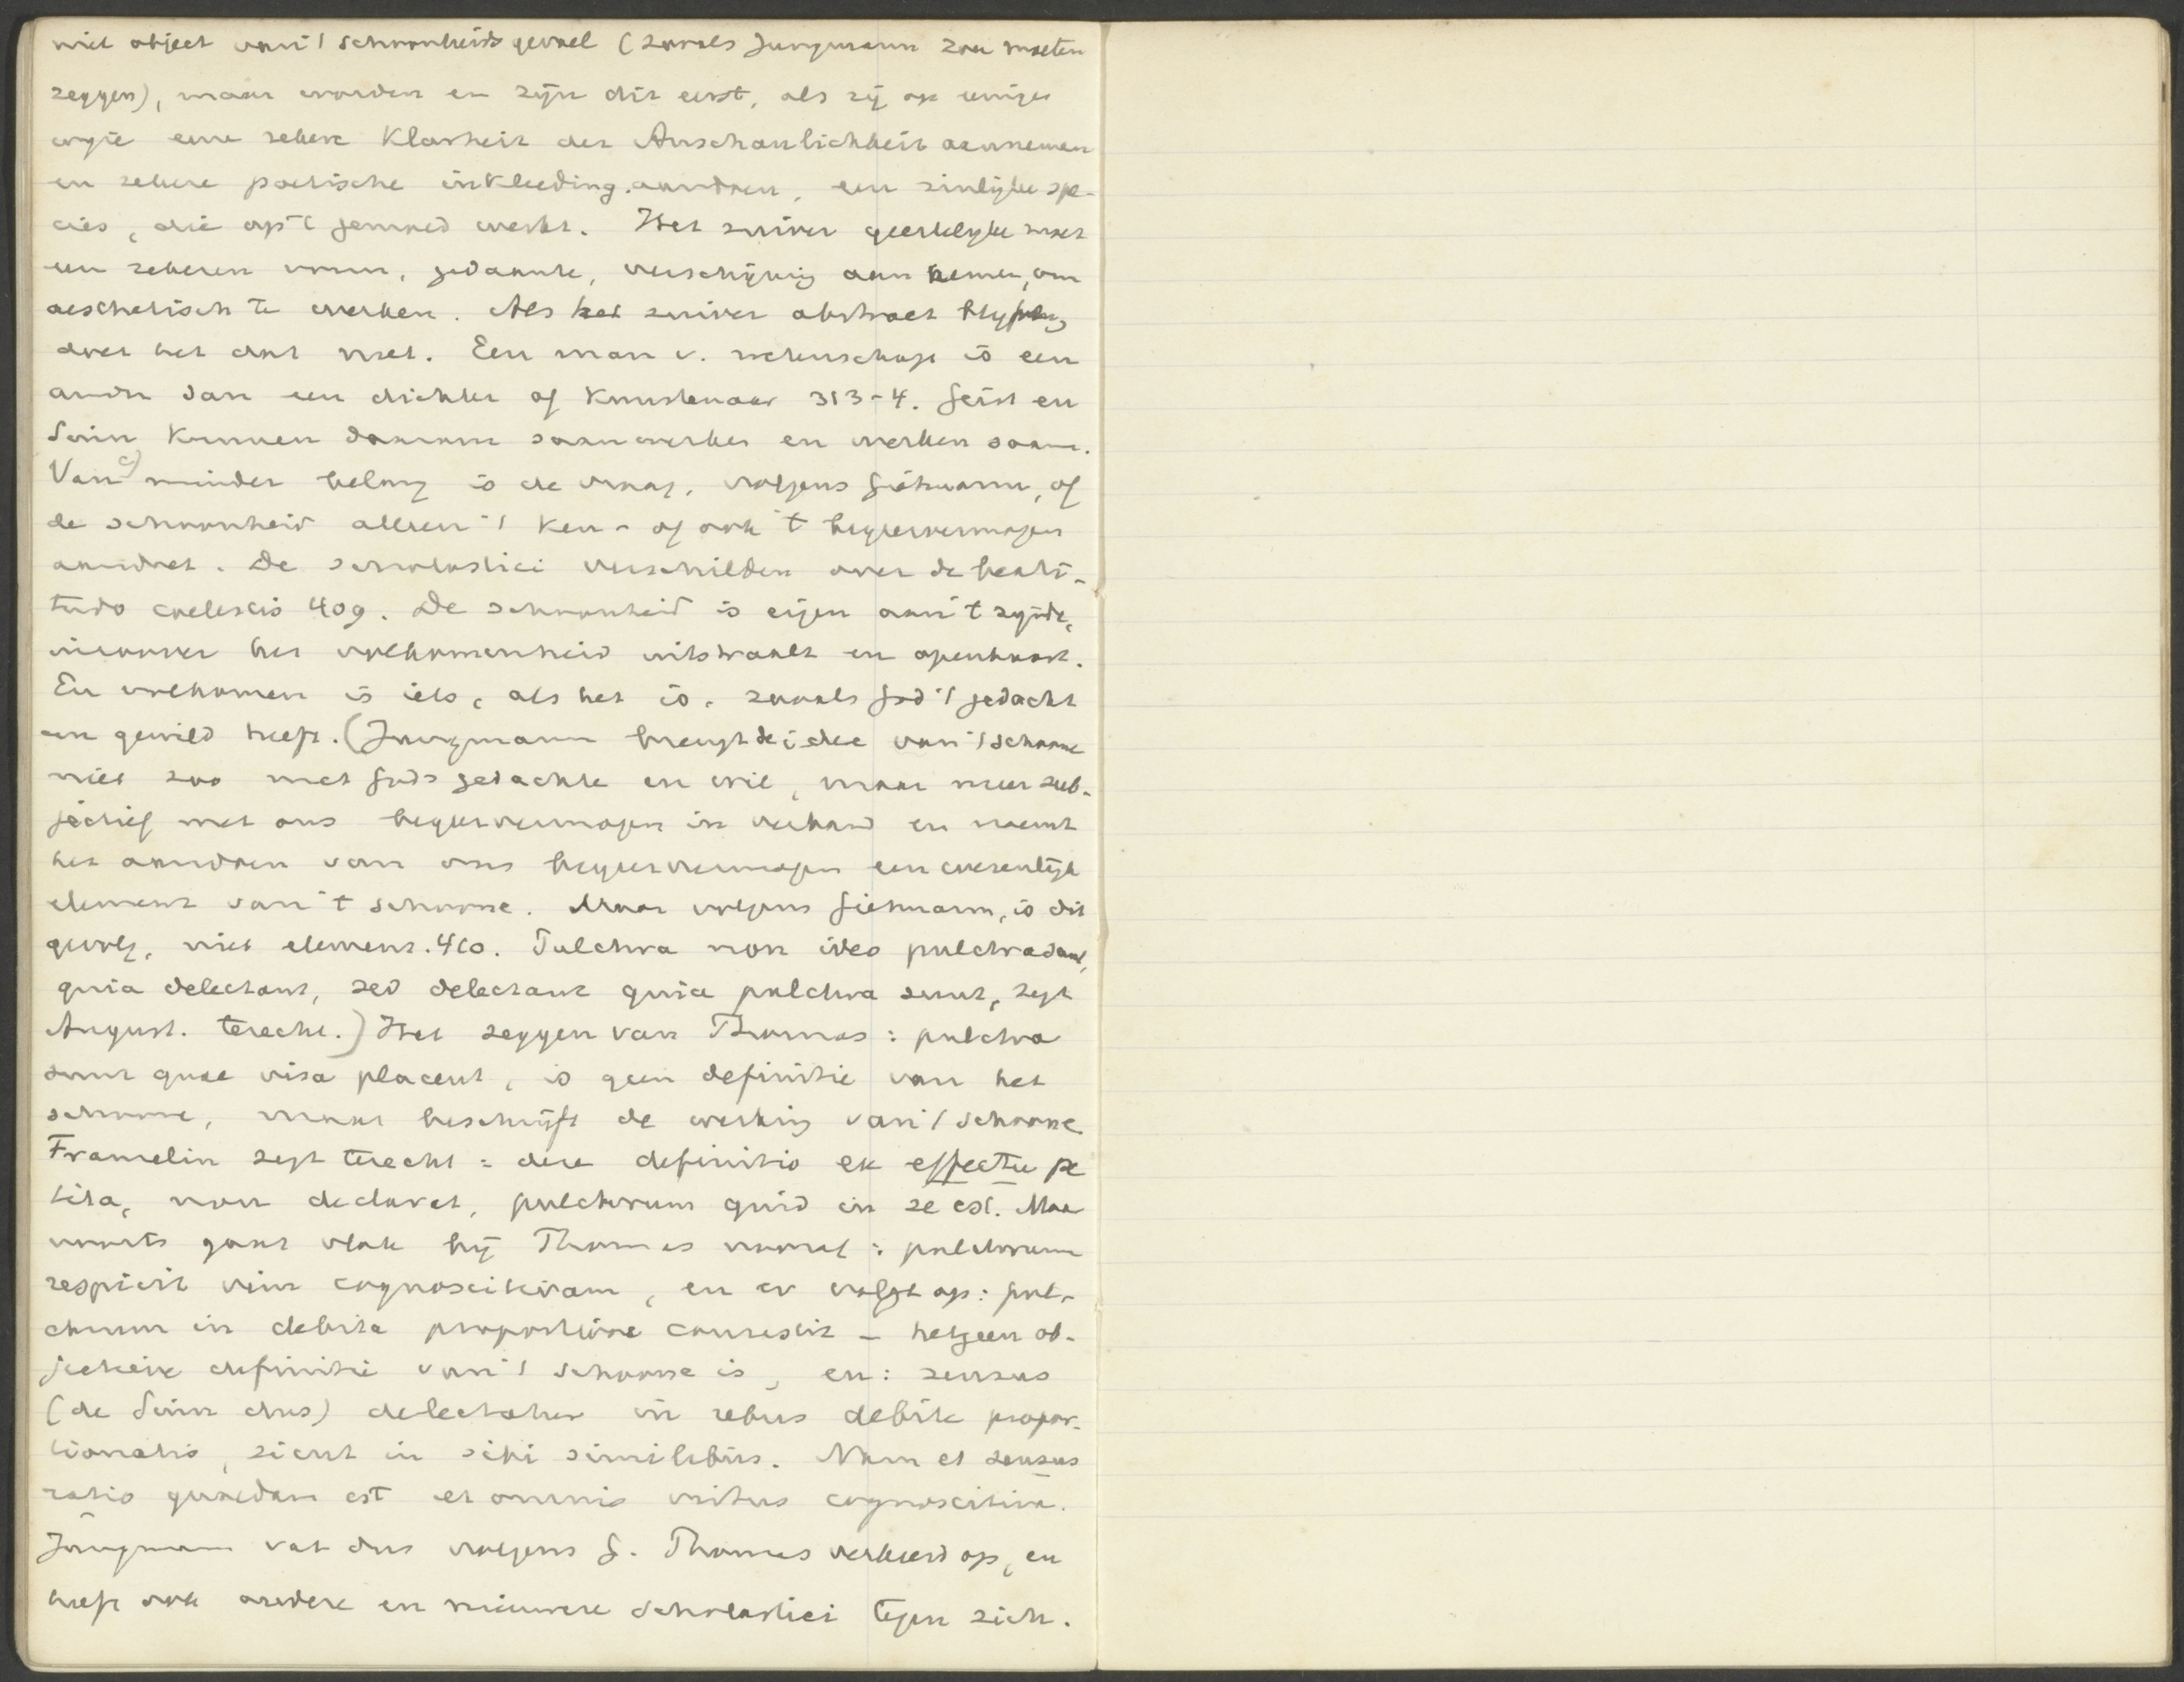 niet object van 't schoonheidsgevoel (zooals Jungmann zou moeten
zeggen), maar worden en zijn dit eerst, als zij op eenige
wyze eene zekere Klarheit der Anschaulichkeit aannemen
en zekere poetische inkleeding aandoen, een zinlijke spe-
cies, die op 't gemoed werkt. Het zuiver geestelyke moet
een zekeren vorm, gedaante, verschijning aan nemen, om
aesthetisch te werken. Als het zuiver abstract blyft,
doet het dat niet. Een man v. wetenschap is een
ander dan een dichter of Kunstenaar 313-4. Geist en
Sinn kunnen daarom saamwerken en werken saam.
Van c) minder belang is de vraag, volgens Gietmann, of
de schoonheid alleen 't ken- of ook 't begeervermogen
aandoet. De scholastici verschilden over de beati-
tudo coelestis 409. De schoonheid is eigen aan 't zynde,
in zoover het volkomenheid uitstraalt en openbaart.
En volkomen is iets, als het is, zooals God 't gedacht
en gewild heeft. (Jungmann brengt de idee van 't schoone
niet zoo met Gods gedachte en wil, maar meer sub-
jectief met ons begeervermogen in verband en noemt
het aandoen van ons begeervermogen een wezenlijk
element van 't schoone. Maar volgens Gietmann, is dit
gevolg, niet element. 410. Pulchra non ideo pulchra sunt,
quia delectant, sed delectant quia pulchra sunt, zegt
August. terecht.) Het zeggen van Thomas: pulchra
sunt quae visa placent, is geen definitie van het
schoone, maar beschrijft de werking van 't schoone
Framelin zegt terecht: deze definitio ex effectu pe
tita, non declarat, pulchrum quid in se est. Maar
voorts gaat vlak bij Thomas vooraf: pulchrum
respicit vim cognoscitivam, en er volgt op: pul-
chrum in debita proportione consistit - hetgeen ob-
jectieve definitie van 't schoone is, en: sensus
(de Sinn dus) delectatur in rebus debite propor-
tionatis, sicut in sibi similibus. Nam et sensus
ratio quaedam est et omnis virtus cognoscitiva.
Jungmann vat dus volgens G. Thomas verkeerd op, en
heeft ook oudere en nieuwere scholastici tegen zich.